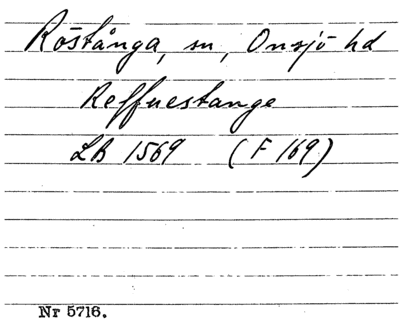 Röstånga, sn, Onsjö hd
Reffuestange
LB 1569 (F 169)
Nr 5716.